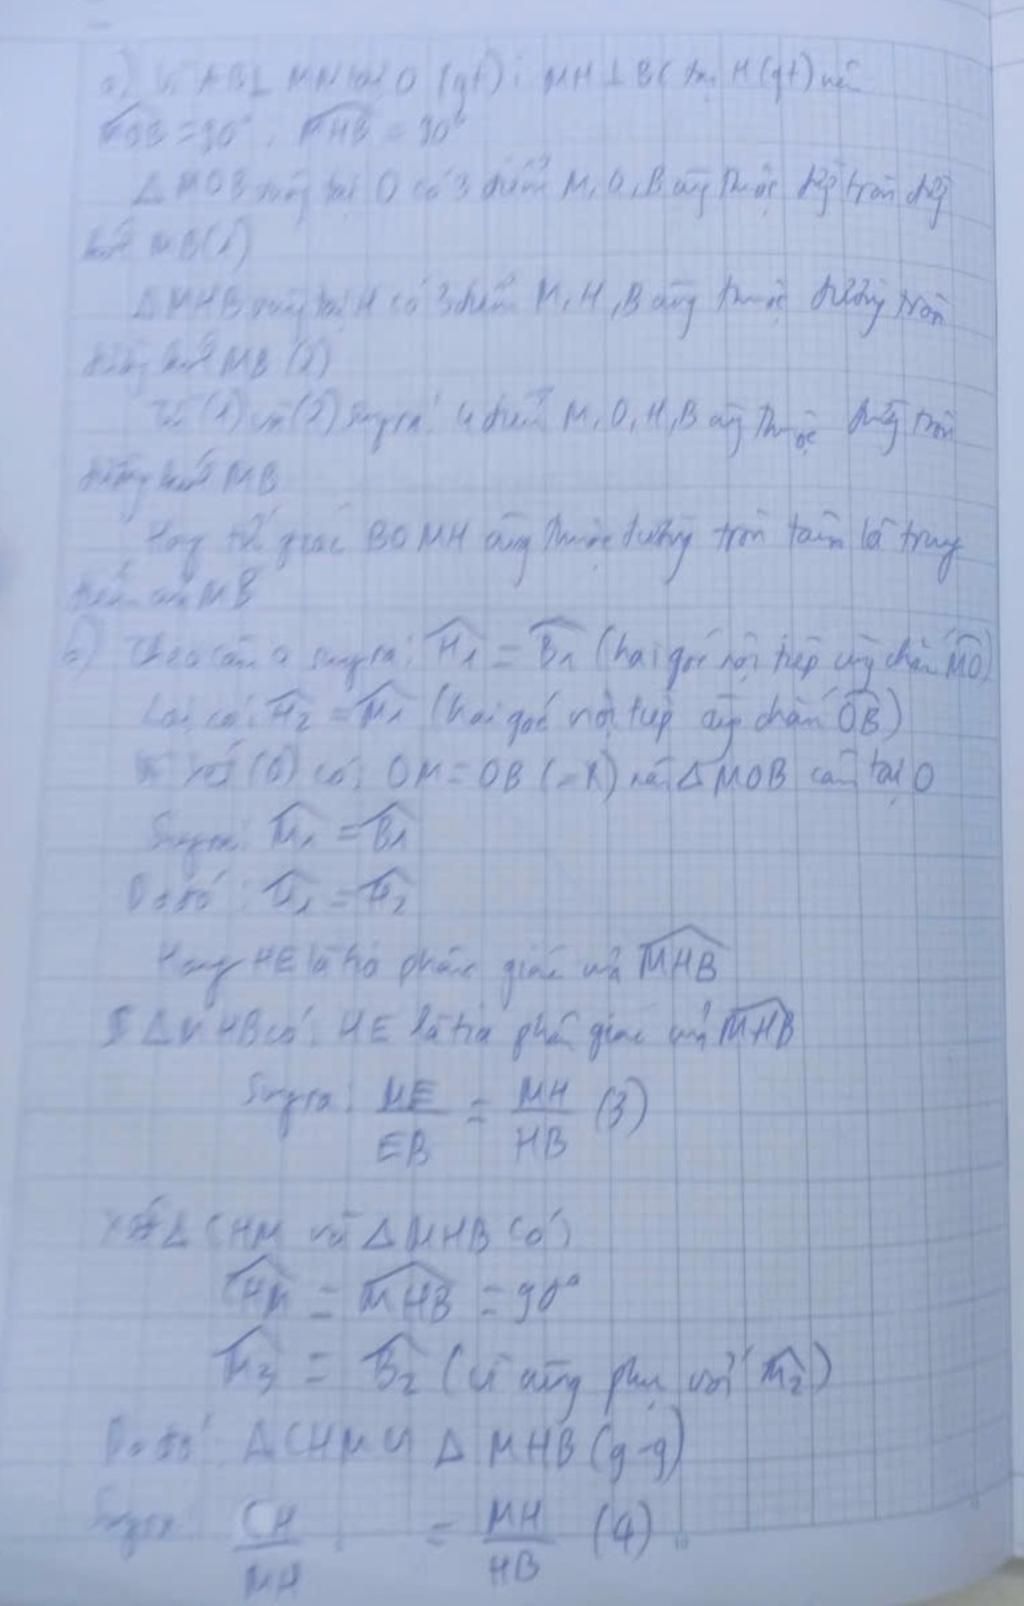 a) Vì AB⊥ MN tại O (gt) ; MH⊥BC tại H(gt) nên
MOB = 90°, MHB = 90°
Δ MOB vuông tại O có 3 điểm M, O, B cùng thuộc đường tròn đường
kính MB(1)
Δ MHB vuông tại H có 3 điểm M, H, B cùng thuộc đường tròn
đường kính MB (2)
Từ (1) và (2) suy ra: 4 điểm M, O, H, B cùng thuộc đường tròn
đường kính MB
Hay tứ giác BOMH cùng thuộc đường tròn tâm là trung
điểm của MB
b) Theo câu a suy ra: H₁ = B₁ (hai góc nội tiếp cùng chắn MO)
Lại có: H₂ = M₁ (hai góc nội tiếp cùng chắn OB)
Xét (O) có: OM = OB (=R) nên Δ MOB cân tại O
Suy ra: M₁ = B₁
Do đó: H₁ = H₂
Hay HE là tia phân giác của MHB
Δ MHB có: HE là tia phân giác của MHB
Suy ra: ME/EB = MH/HB (3)
Xét Δ CHM và Δ MHB có
CHM = MHB = 90°
M₃ = B₂ (vì cùng phụ với M₂)
Do đó: Δ CHM ∽ Δ MHB (g-g)
Suy ra: CH/MH = MH/HB (4)